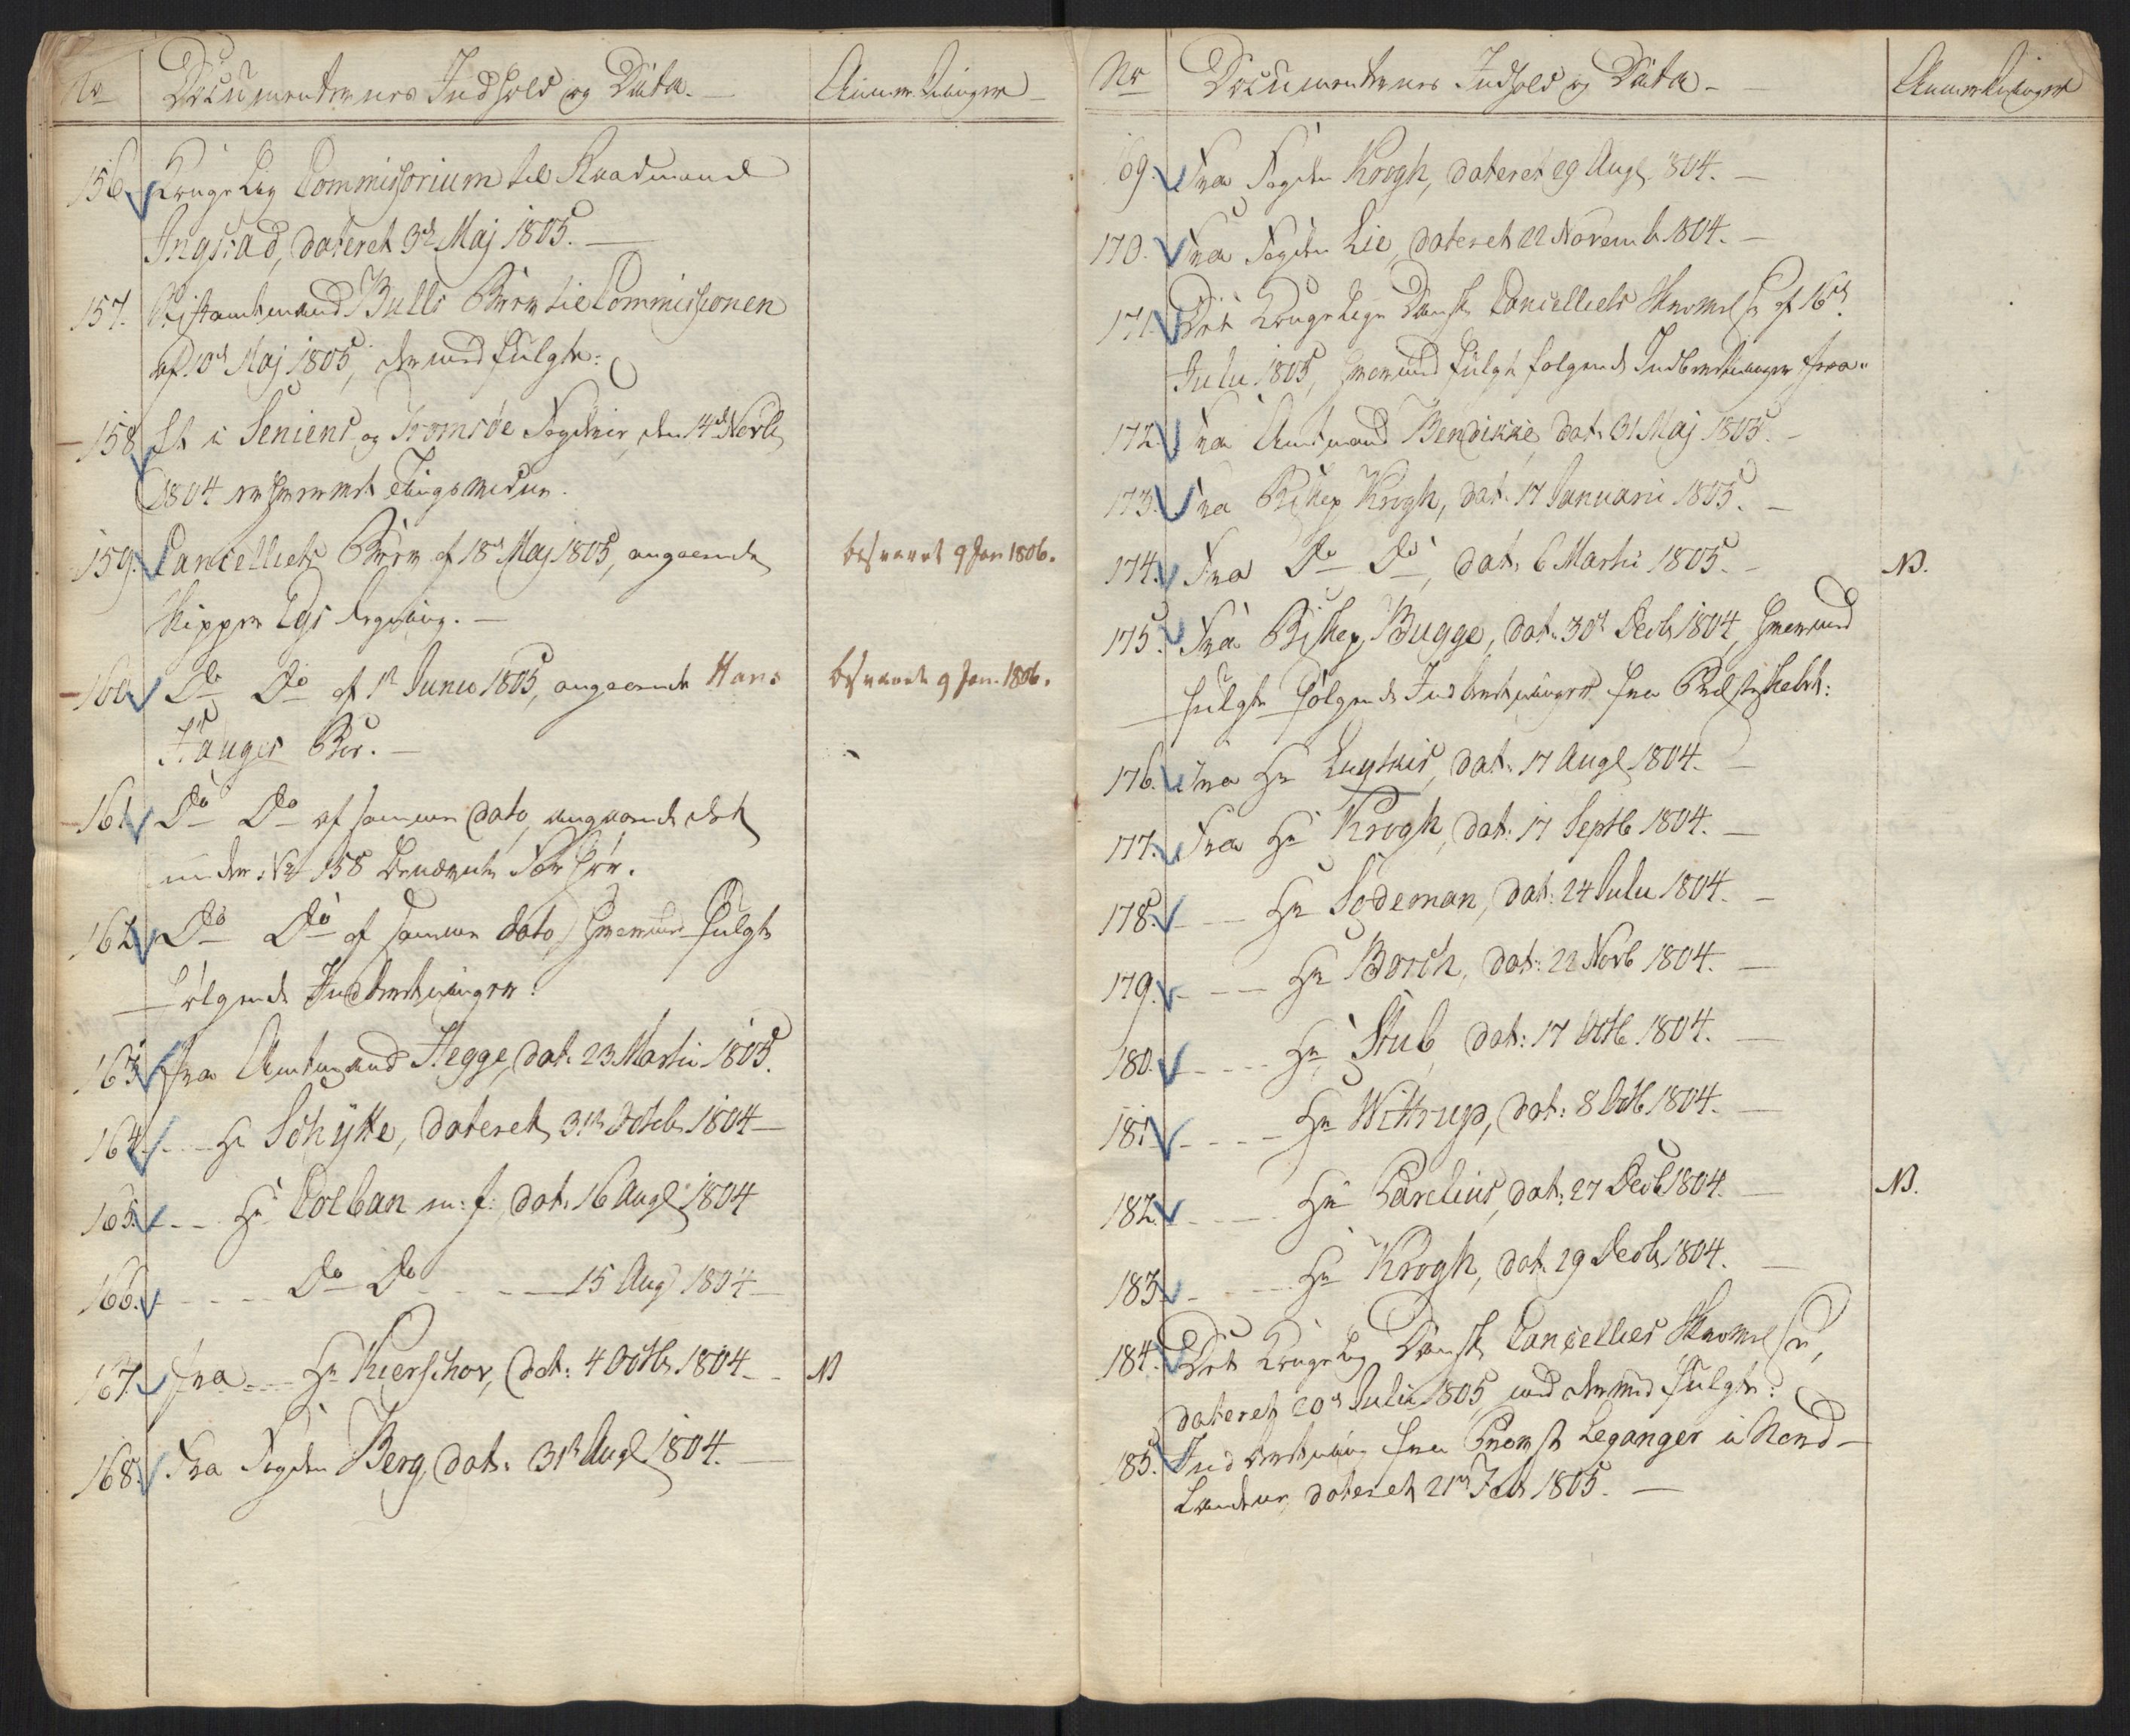 No Documenternes Indhold og Data. — Anmerkninger —
156. Kongelig Commissorium til Raadmand
Ingstad, dateret 3d Maj 1805. —
157. Stiftamtmand Bulls Brev til Commissionen
af 10d Maj 1805, dermed fulgte:
158. Et i Seniens og Tromsøe Fogderie, den 14d Novb
1804 Tingsvidne.
159. Cancelliets Brev af 18d Maj 1805, angaaende besvaret 9 Jan 1806.
Skipper —
160. Do Do af 1st Junii 1805, angaaende Hans besvaret 9 Jan. 1806.
Brev. —
161. Do Do af samme dato, angaaende det
under No 158 benævnte Forhør.
162. Do Do af samme dato, hvormed fulgte
følgende Indberetninger:
163. fra Amtmand Hegge, dat. 23 Martii 1805.
164. - - - Hr Schytte, dateret 31te Octob 1804 —
165. - - - Hr Colban m: f:, dat. 16 Aug 1804
166. - - - Do Do - - - 15 Aug 1804 —
167. fra - - - Hr Kierschov, dat: 4 Octb 1804 - - NB
168. Fra Fogden Berg, dat: 31te Aug 1804. —
No Documenternes Indhold og Data — Anmerkninger
169. Fra Fogden Krogh, dateret 29 Aug 1804. —
170. Fra Fogden Lie, dateret 22 Novemb 1804. —
171. Det Kongelige Danske Cancellies Skrivelse af 16d
Julii 1805, hvormed fulgte følgende Indberetninger fra:
172. Fra Amtmand Bendikke, dat. 31 Maj 1805. —
173. Fra Biskop Krogh, dat. 17 Januarii 1805. —
174. Fra Do Do, dat. 6 Martii 1805. — NB.
175. Fra Biskop Bugge, dat. 30d Decb 1804, hvormed
fulgte følgende Indberetninger fra Præsteskabet:
176. Fra Hr Lyther, dat. 17 Aug 1804. —
177. Fra Hr Krogh, dat. 17 Septb 1804. —
178. - - - Hr Sødeman, dat: 24 Julii 1804. —
179. - - - Hr Borch, dat: 22 Novb 1804. —
180. - - - Hr Stub, dat: 17 Octb 1804. —
181. - - - Hr Wittrup, dat: 8 Octb 1804. —
182. - - - Hr Parelius, dat: 27 Decb 1804. — NB.
183. - - - Hr Krogh, dat. 29 Decb 1804. —
184. Det Kongelig Danske Cancellies Skrivelse,
dateret 20d Julii 1805, med dermed fulgte:
185. Indberetning fra Provst Leganger i Nord-
Landene, dateret 21de Feb 1805. —